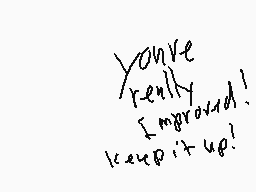 you're
really
Improved!
keep it up!